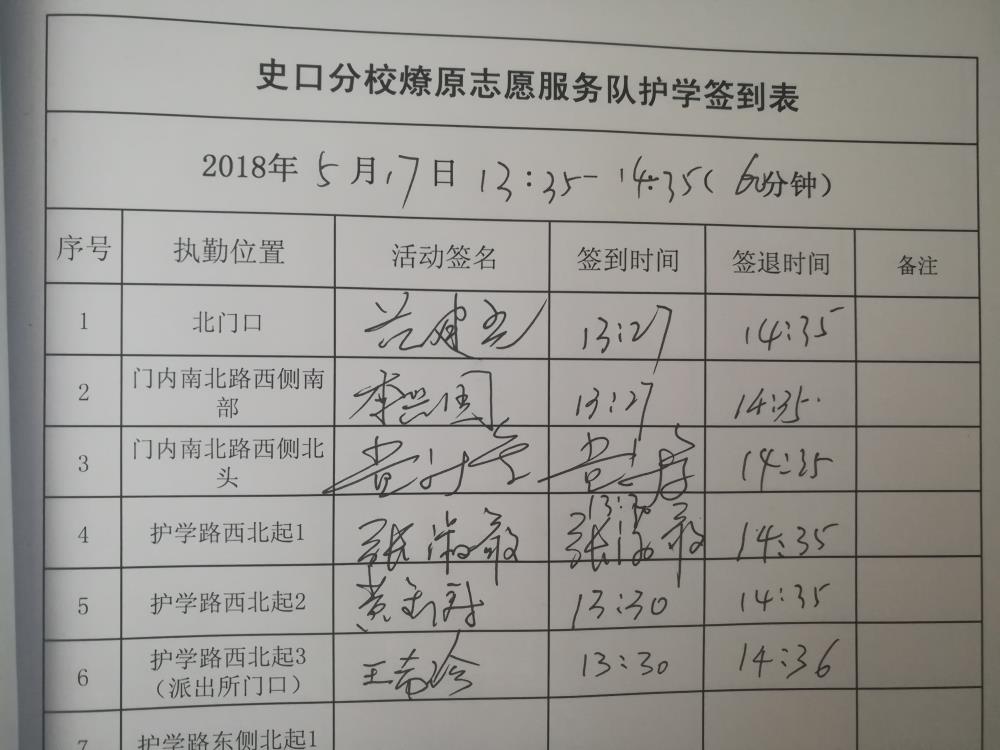 史口分校燎原志愿服务队护学签到表
2018年 5 月 17 日 13:35-14:35(60分钟)
序号 执勤位置 活动签名 签到时间 签退时间 备注
1 北门口 13:27 14:35
2 门内南北路西侧南
部 李兴国 13:27 14:35
3 门内南北路西侧北
头 14:35
4 护学路西北起1 张淑敏 13:30 张淑敏 14:35
5 护学路西北起2 黄 13:30 14:35
6 护学路西北起3
(派出所门口) 王 13:30 14:36
7 护学路东侧北起1